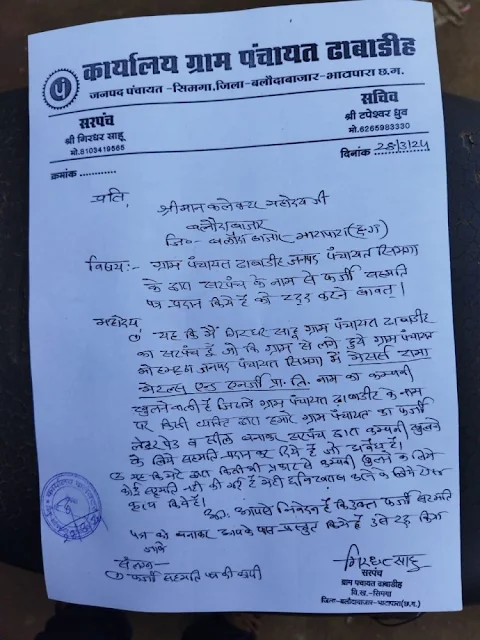 कार्यालय ग्राम पंचायत ढाबाडीह
जनपद पंचायत -सिमगा.जिला-बलौदाबाजार-भाटापारा छ.ग.
सरपंच
श्री गिरधर साहू
मो.8103419565
सचिव
श्री टपेश्वर ध्रुव
मो.6265983330
क्रमांक ............
दिनांक 28/3/24
प्रति,
श्रीमान कलेक्टर महोदय जी
बलौदाबाजार
जिला- बलौदा बाजार भाटापारा (छ.ग)
विषय:- ग्राम पंचायत ढाबाडीह जनपद पंचायत सिमगा
के द्वारा सरपंच के नाम से फर्जी सहमति
पत्र प्रदान किये हैं को रद्द करने बाबत।
महोदय,
यह कि मैं गिरधर साहू ग्राम पंचायत ढाबाडीह
का सरपंच हूँ जो कि ग्राम से लगे हुये ग्राम पंचायत
जनपद पंचायत सिमगा में मेसर्स
मेटल्स एन्ड एनर्जी प्रा. लि. नाम का कम्पनी
खुलने वाली है जिसमें ग्राम पंचायत ढाबाडीह के नाम
पर किसी व्यक्ति द्वारा हमारे ग्राम पंचायत का फर्जी
लेटर पेड व सील बनाकर सरपंच द्वारा कम्पनी खुलने
के लिये सहमति प्रदान कर दिये हैं जो अवैध है।
यह कि मेरे द्वारा किसी भी प्रकार से कम्पनी खुलने के लिये
कोई सहमति नहीं दी गई है मेरी छवि खराब करने के लिये ऐसा
किये हैं।
अतः आपसे निवेदन है कि उक्त फर्जी सहमति
पत्र को बनाकर आपके पास प्रस्तुत किये हैं उसे रद्द किया
जावे
संलग्न -
① फर्जी सहमति पत्र की कापी
गिरधर साहू
सरपंच
ग्राम पंचायत ढाबाडीह
वि.ख.-सिमगा
जिला-बलौदाबाजार-भाटापारा(छ.ग.)